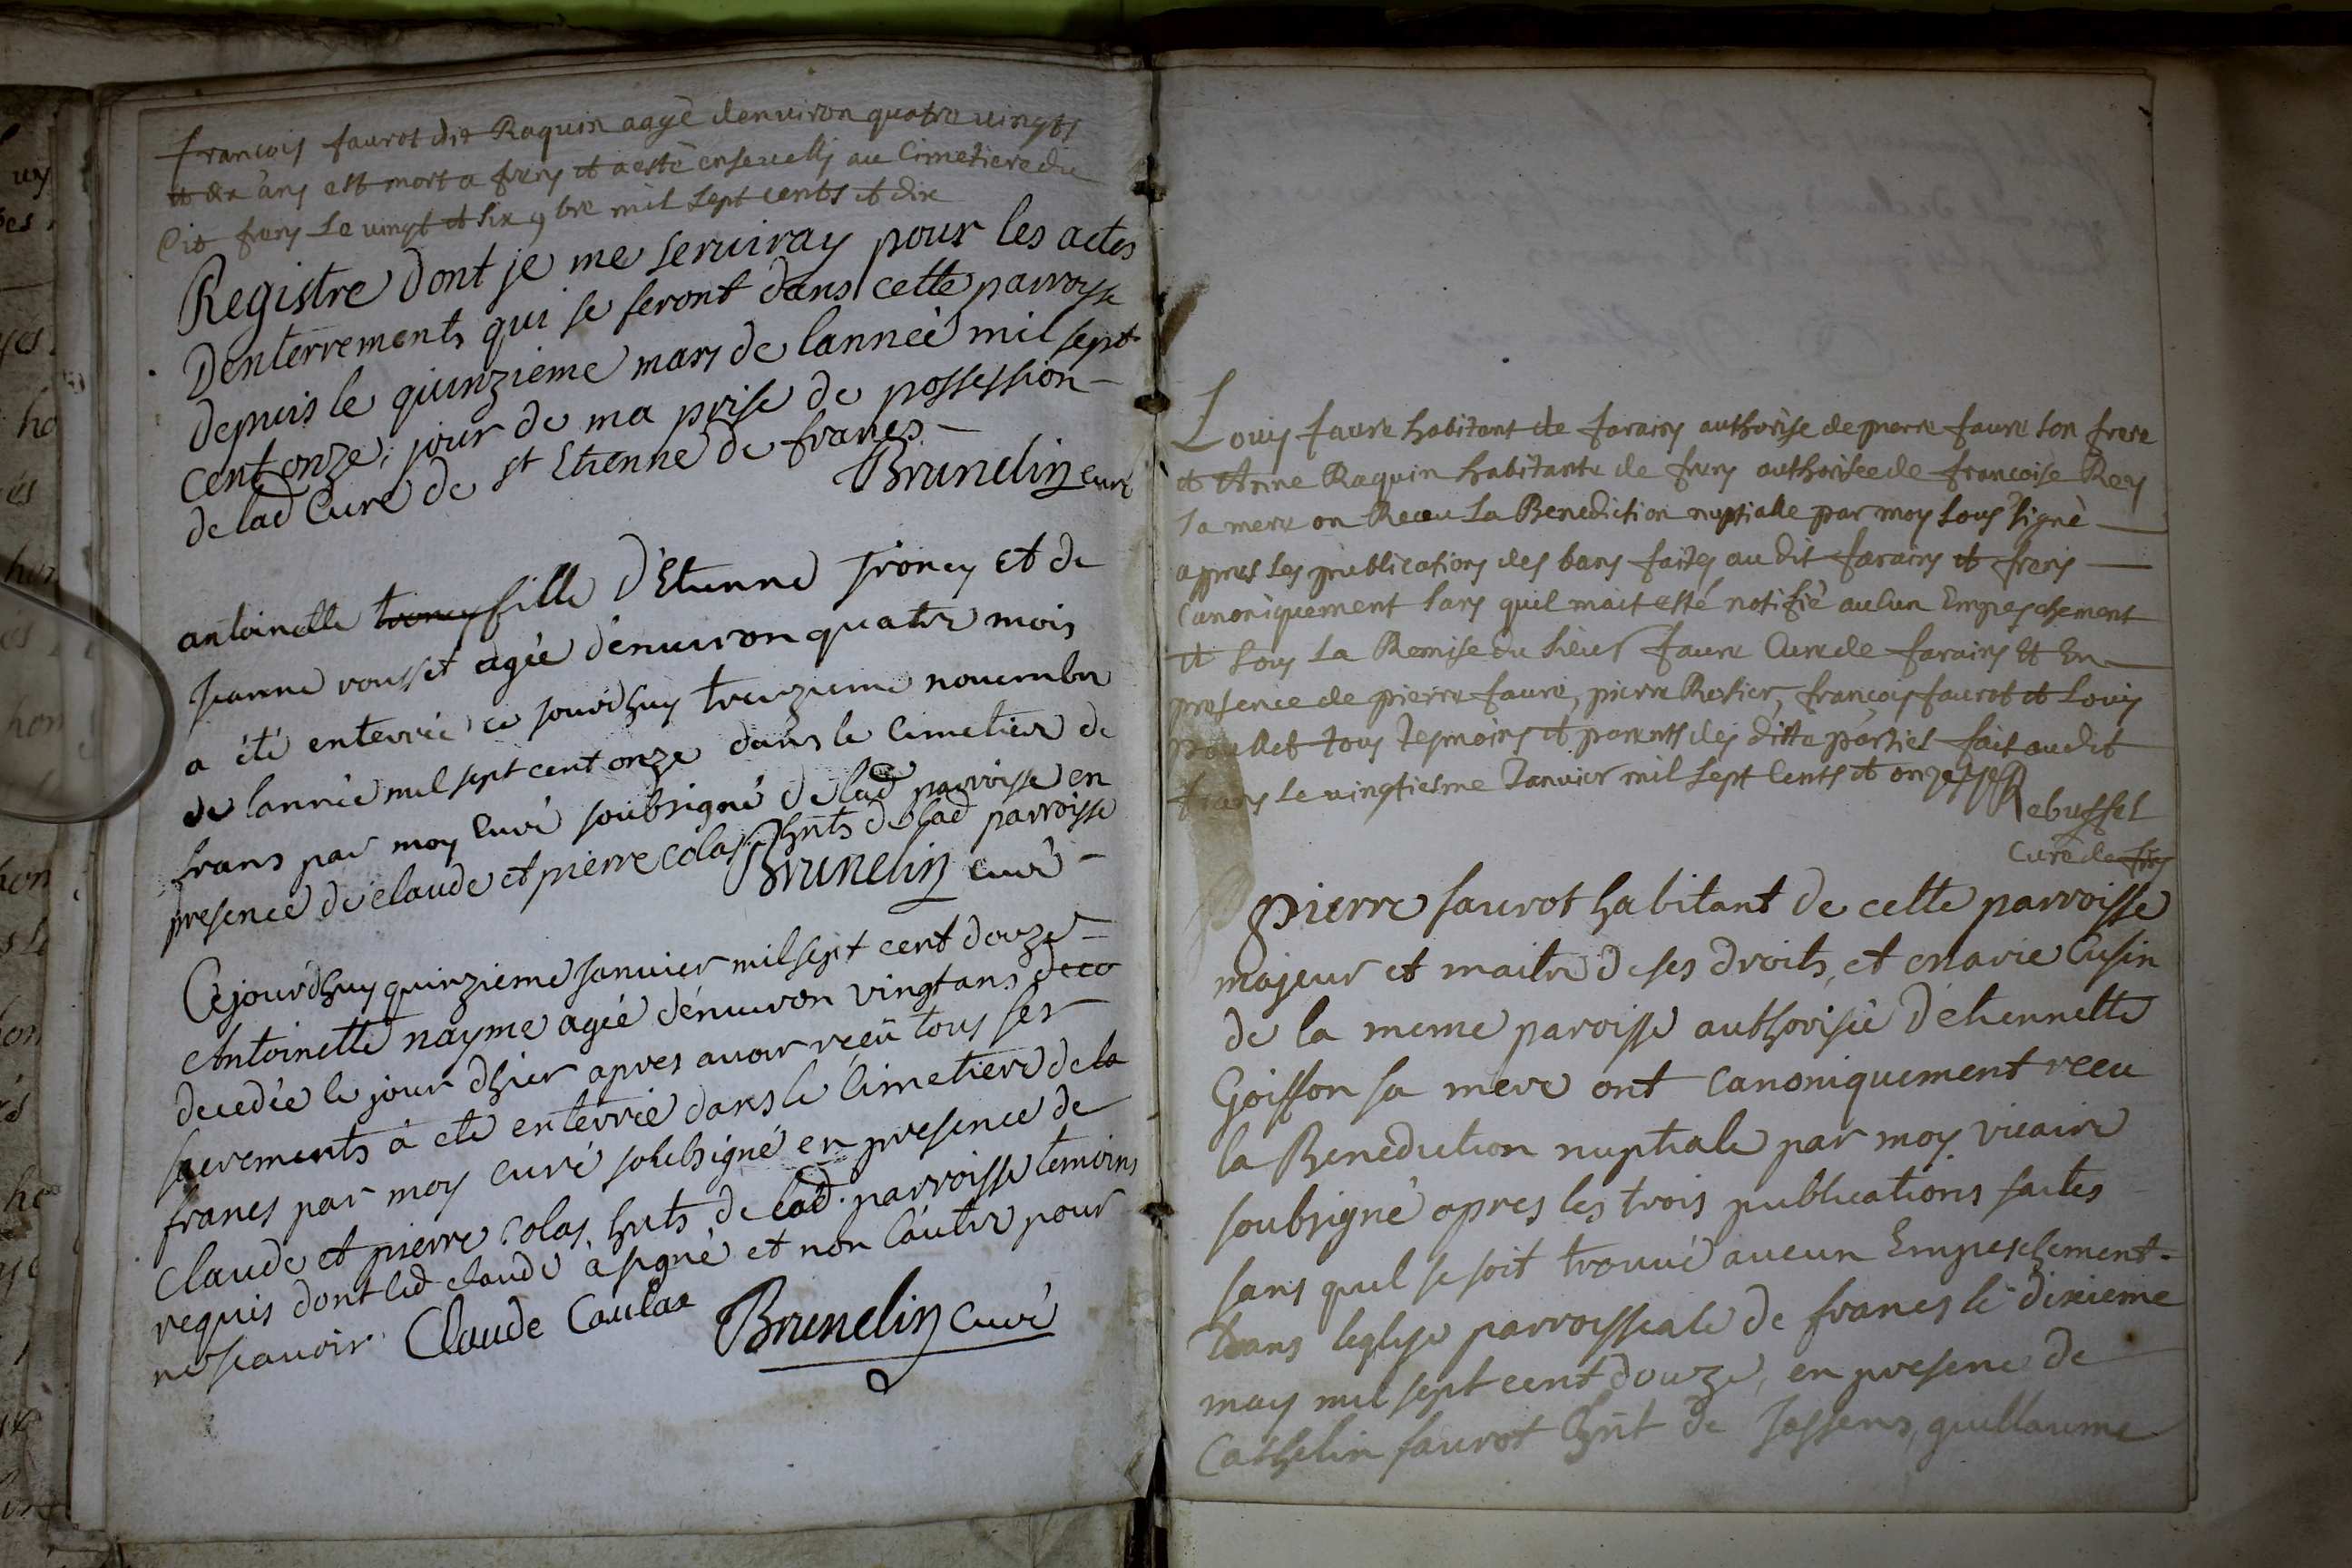 francois faurot dit Raquin aagè denuiron quatre uingts
et dix ans est mort a frans et a esté enseuelly au Cimetiere du
Dit frans Le uingt et six 9bre mil sept cents et dix
Registre dont je me seruiray pour les actes
Denterrements qui se feront dans cette parroysse
depuis le quinzieme mars de lanneé mil sept
cent onze, jour de ma prise de possession
de lad Cure de st Etienne de francs
Brunelin curé
antoinette troncy fille d'Etienne troncy et de
jeanne rousset agéé d'enuiron quatre mois
a été enterrée ce jourdhuy treizieme nouembre
de lanneé mil sept cent onze dans le Cimetiere de
frans par moy Curé soubsigné de lad parroisse en
presence de claude et pierre colas hnts de lad parroisse
Brunelin curé
Cejourdhuy quinzieme januier mil sept cent douze
Antoinette nayme agéé d'enuiron vingt ans
decedée le jour dhier apres auoir reçü tous ses
sacrements à eté enterrée dans le Cimetiere de la
francs par moy curé soubsigné en presence de
Claude et pierre Colas, hnts de lad. parroisse temoins
requis dont led claude à signé et non l'autre pour
ne scauoir Claude Caulas
Brunelin Curé
Louys faure habitant de farains authorise de pierre faure son frere
et Anne Raquin habitante de frans authorisée de francoise Rey
sa mere on Receu La Benediction nuptialle par moy sous signè
appres Les publications des bans faites au dit farains et frans
Canoniquement sans quil mait esté notifiè aulcun Empeschement
et sous La Remise du sieur faure Cure de farains Et En
presence de pierre faure, pierre Restier, françois faurot et Louis
Poullet tous Tesmoins et parents des ditte parties fait audit
frans Le uingtiesme Januier mil sept Cents et onze
Rebuffet
Curè de frans
Pierre faurot habitant de cette parroisse
majeur et maitre de ses droits, et marie Cusin
de la meme paroisse authorisée d'etiennette
Goiffon sa mere ont Canoniquement receu
la Benediction nuptiale par moy vicaire
soubsigné apres les trois publications faites
sans quil se soit trouué aucun Empeschement
Dans leglise parroissiale de francs le dixieme
may mil sept cent douze, en presence de
Cathelin faurot hnt de Jassens, guillaume